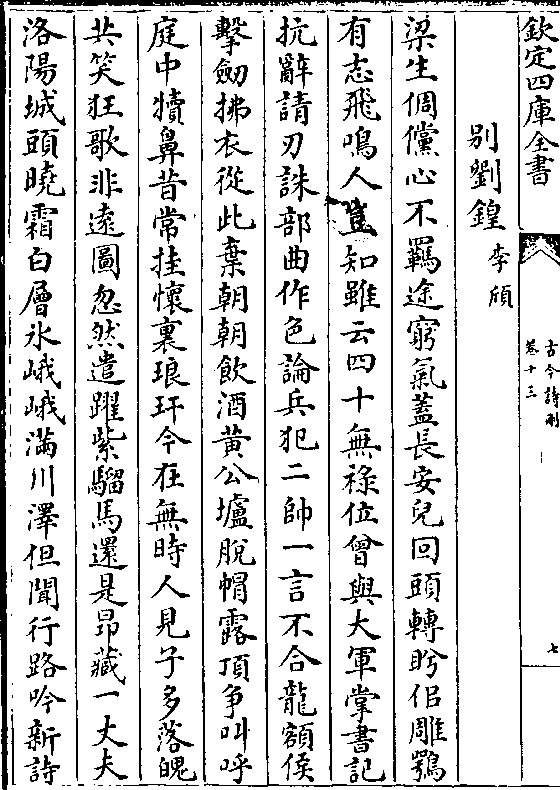 欽定四庫全書
古今詩刪
卷十三
七
別劉鍠 李頎
梁生倜儻心不羈途窮氣蓋長安兒回頭轉盼侣雕鶚
有志飛鳴人豈知雖云四十無祿位曾與大軍掌書記
抗辭請刃誅部曲作色論兵犯二帥一言不合龍額侯
擊劒拂衣從此棄朝朝飲酒黄公壚脫帽露頂爭叫呼
庭中犢鼻昔常挂懷裏琅玕今在無時人見子多落魄
共笑狂歌非遠圖忽然遣躍紫騮馬還是昂藏一丈夫
洛陽城頭曉霜白層冰峨峨滿川澤但聞行路吟新詩